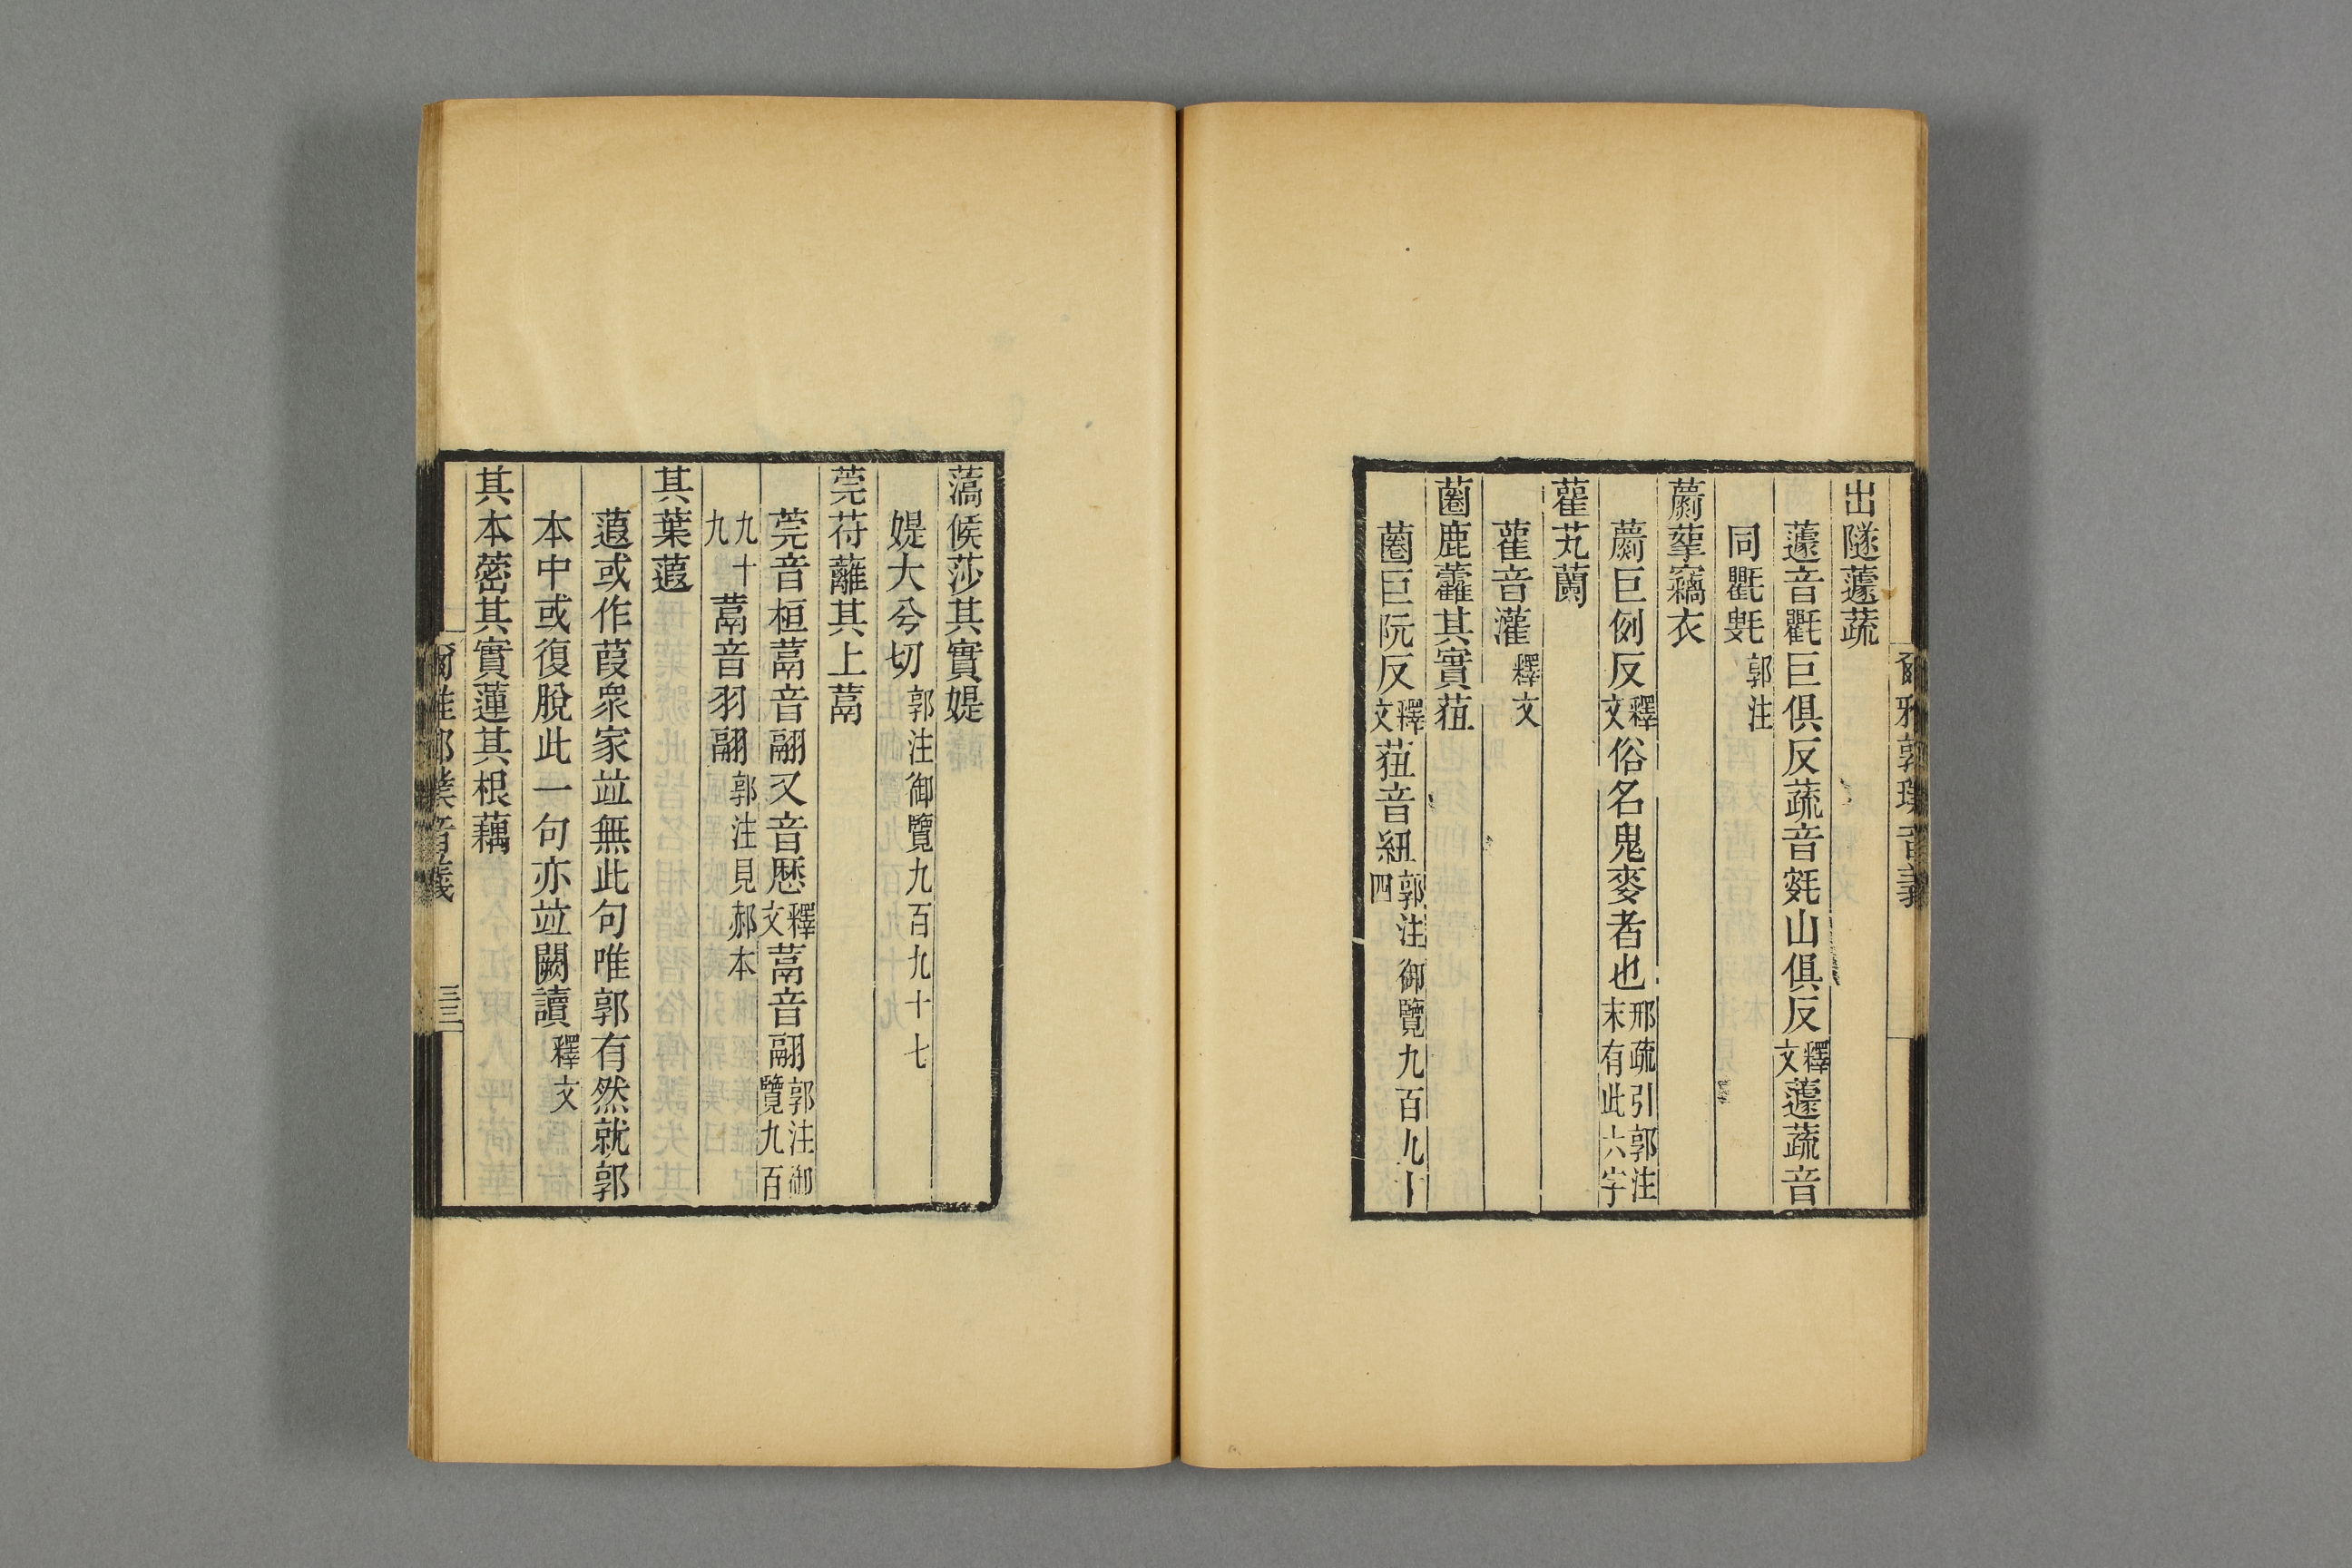 爾雅郭璞音義
出隧蘧蔬
蘧音氍巨俱反蔬音㲣山俱反釋文蘧蔬音
同氍㲣郭注
藆挈竊衣
藆巨例反釋文俗名鬼麥者也邢疏引郭注末有此六字
雚芄蘭
雚音灌釋文
菌鹿藿其實莥
菌巨阮反釋文莥音紐郭注御覽九百九十四
薃侯莎其實媞
媞大兮切郭注御覽九百九十七
莞苻蘺其上蒚
莞音桓蒚音翮又音歷釋文蒚音翮郭注御覽九百
九十九蒚音羽翮郭注見郝本
其葉蕸
蕸或作葭衆家竝無此句唯郭有然就郭
本中或復脫此一句亦竝闕讀釋文
其本蔤其實蓮其根藕
爾雅郭璞音義 三三